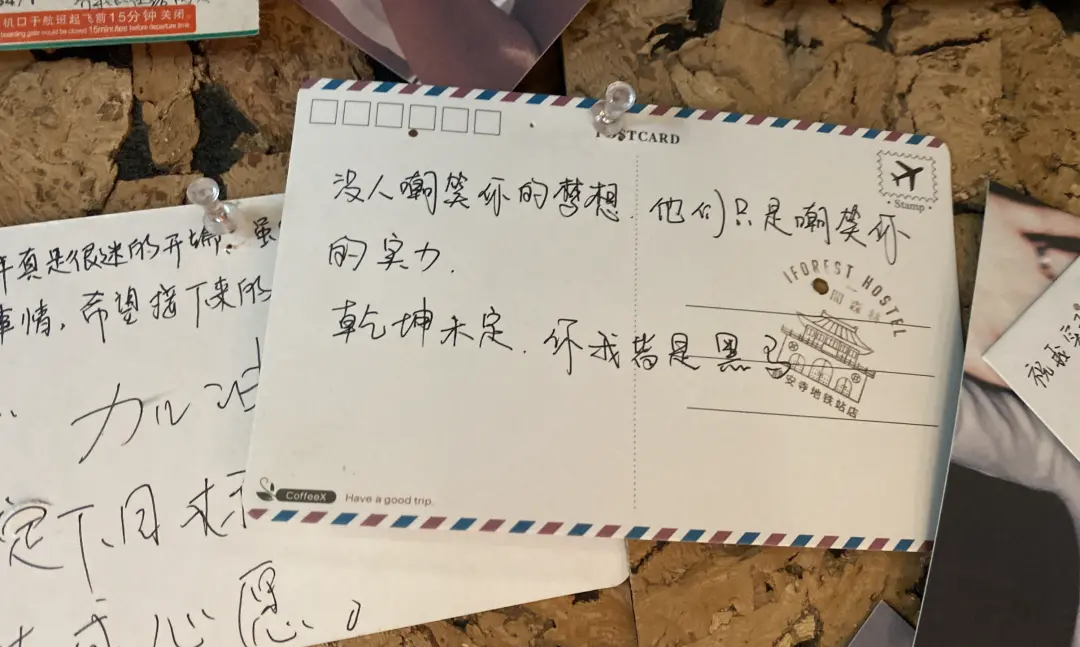 机口于航班起飞前15分钟关闭.
boarding gate would be closed 15minutes before departure time
POSTCARD
Stamp
没人嘲笑你的梦想. 他们只是嘲笑你
的实力.
乾坤未定. 你我皆是黑马
IFOREST HOSTEL
安寺地铁站店
CoffeeX
Have a good trip.
年真是很迷的开端. 虽
事情, 希望接下来的
加油
定下目标
心愿。
祝我